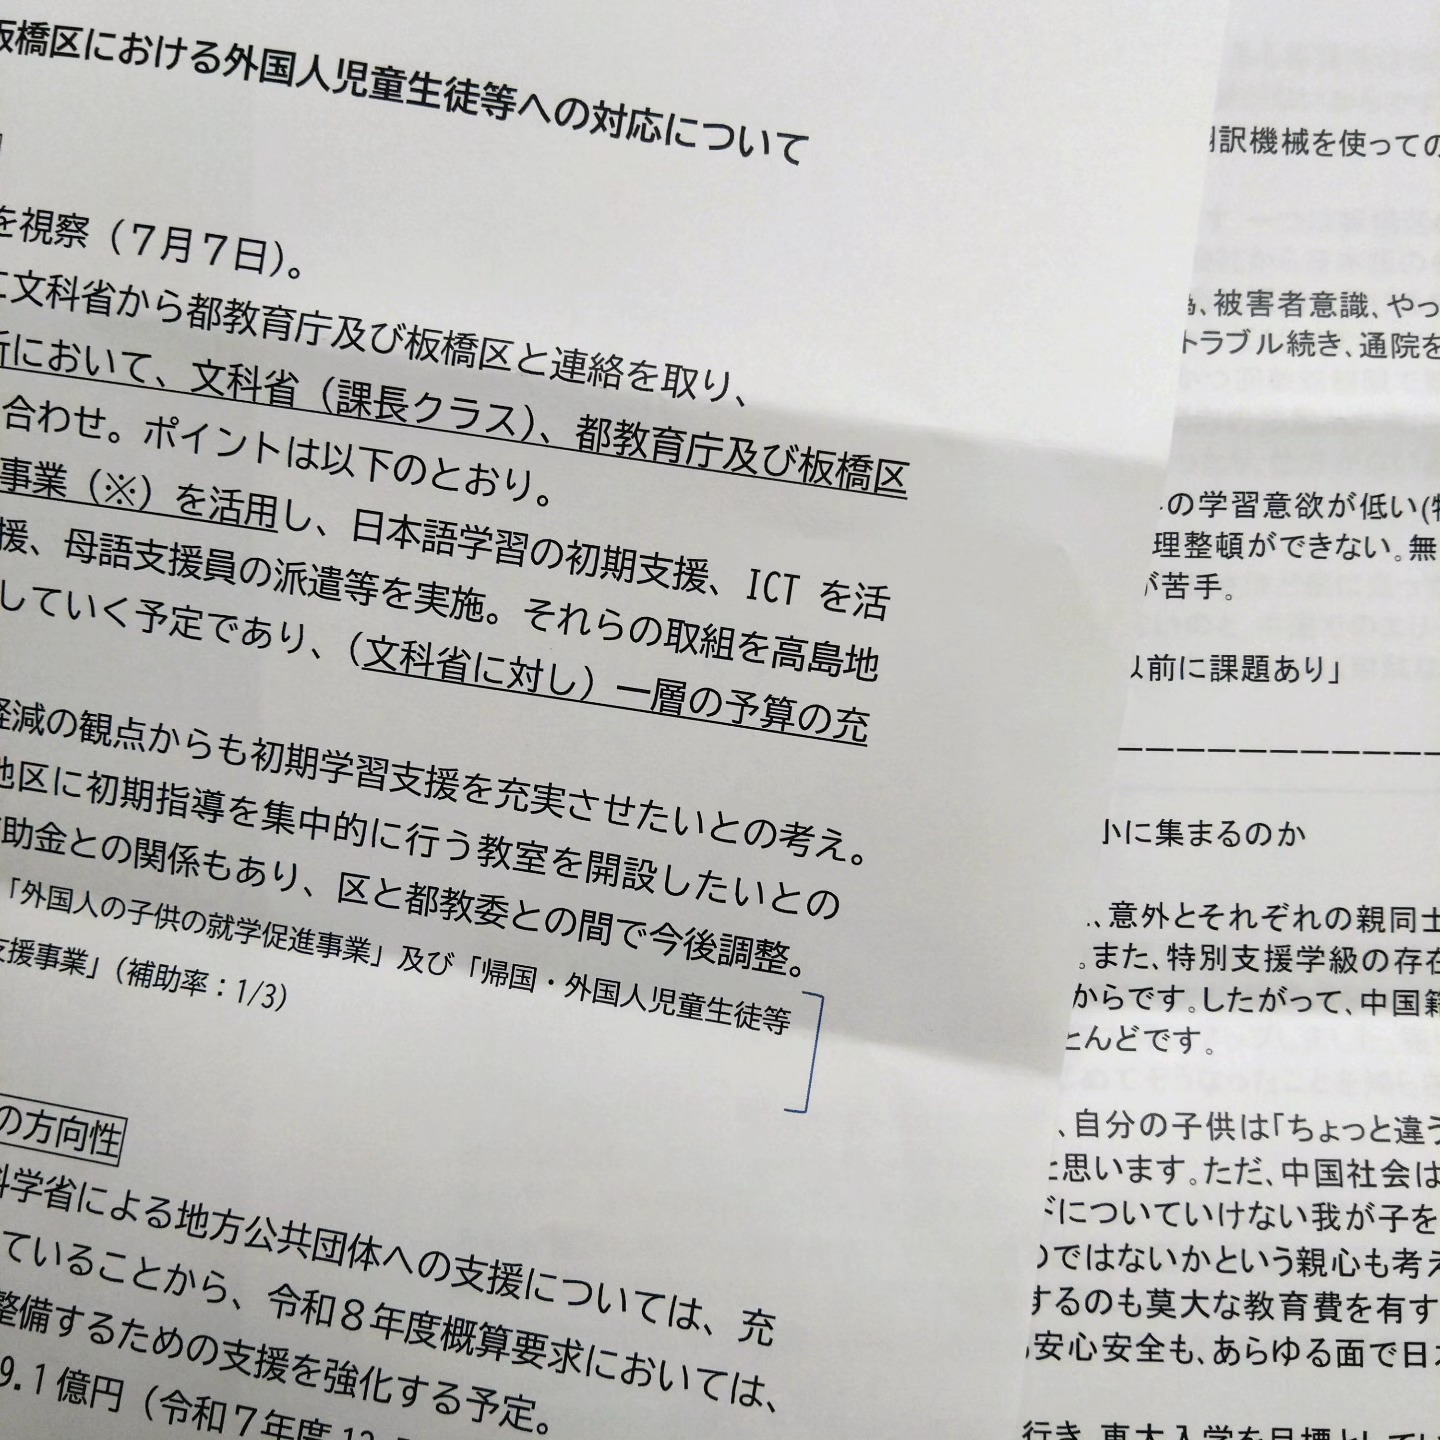 板橋区における外国人児童生徒等への対応について
を視察(7月7日)。
に文科省から都教育庁及び板橋区と連絡を取り、
において、文科省(課長クラス)、都教育庁及び板橋区
合わせ。ポイントは以下のとおり。
事業(※)を活用し、日本語学習の初期支援、ICT を活
援、母語支援員の派遣等を実施。それらの取組を高島地
していく予定であり、(文科省に対し)一層の予算の充
軽減の観点からも初期学習支援を充実させたいとの考え。
地区に初期指導を集中的に行う教室を開設したいとの
助金との関係もあり、区と都教委との間で今後調整。
「外国人の子供の就学促進事業」及び「帰国・外国人児童生徒等
支援事業」(補助率:1/3)
の方向性
科学省による地方公共団体への支援については、充
ていることから、令和8年度概算要求においては、
整備するための支援を強化する予定。
9.1億円(令和7年度
訳機械を使っての
、被害者意識、やっ
トラブル続き、通院を
の学習意欲が低い(
理整頓ができない。無
が苦手。
以前に課題あり」
小に集まるのか
、意外とそれぞれの親同士
。また、特別支援学級の存在
からです。したがって、中国籍
とんどです。
、自分の子供は「ちょっと違う
と思います。ただ、中国社会は
についていけない我が子を
のではないかという親心も考え
するのも莫大な教育費を有す
安心安全も、あらゆる面で日
行き、東大入学を目標としてい